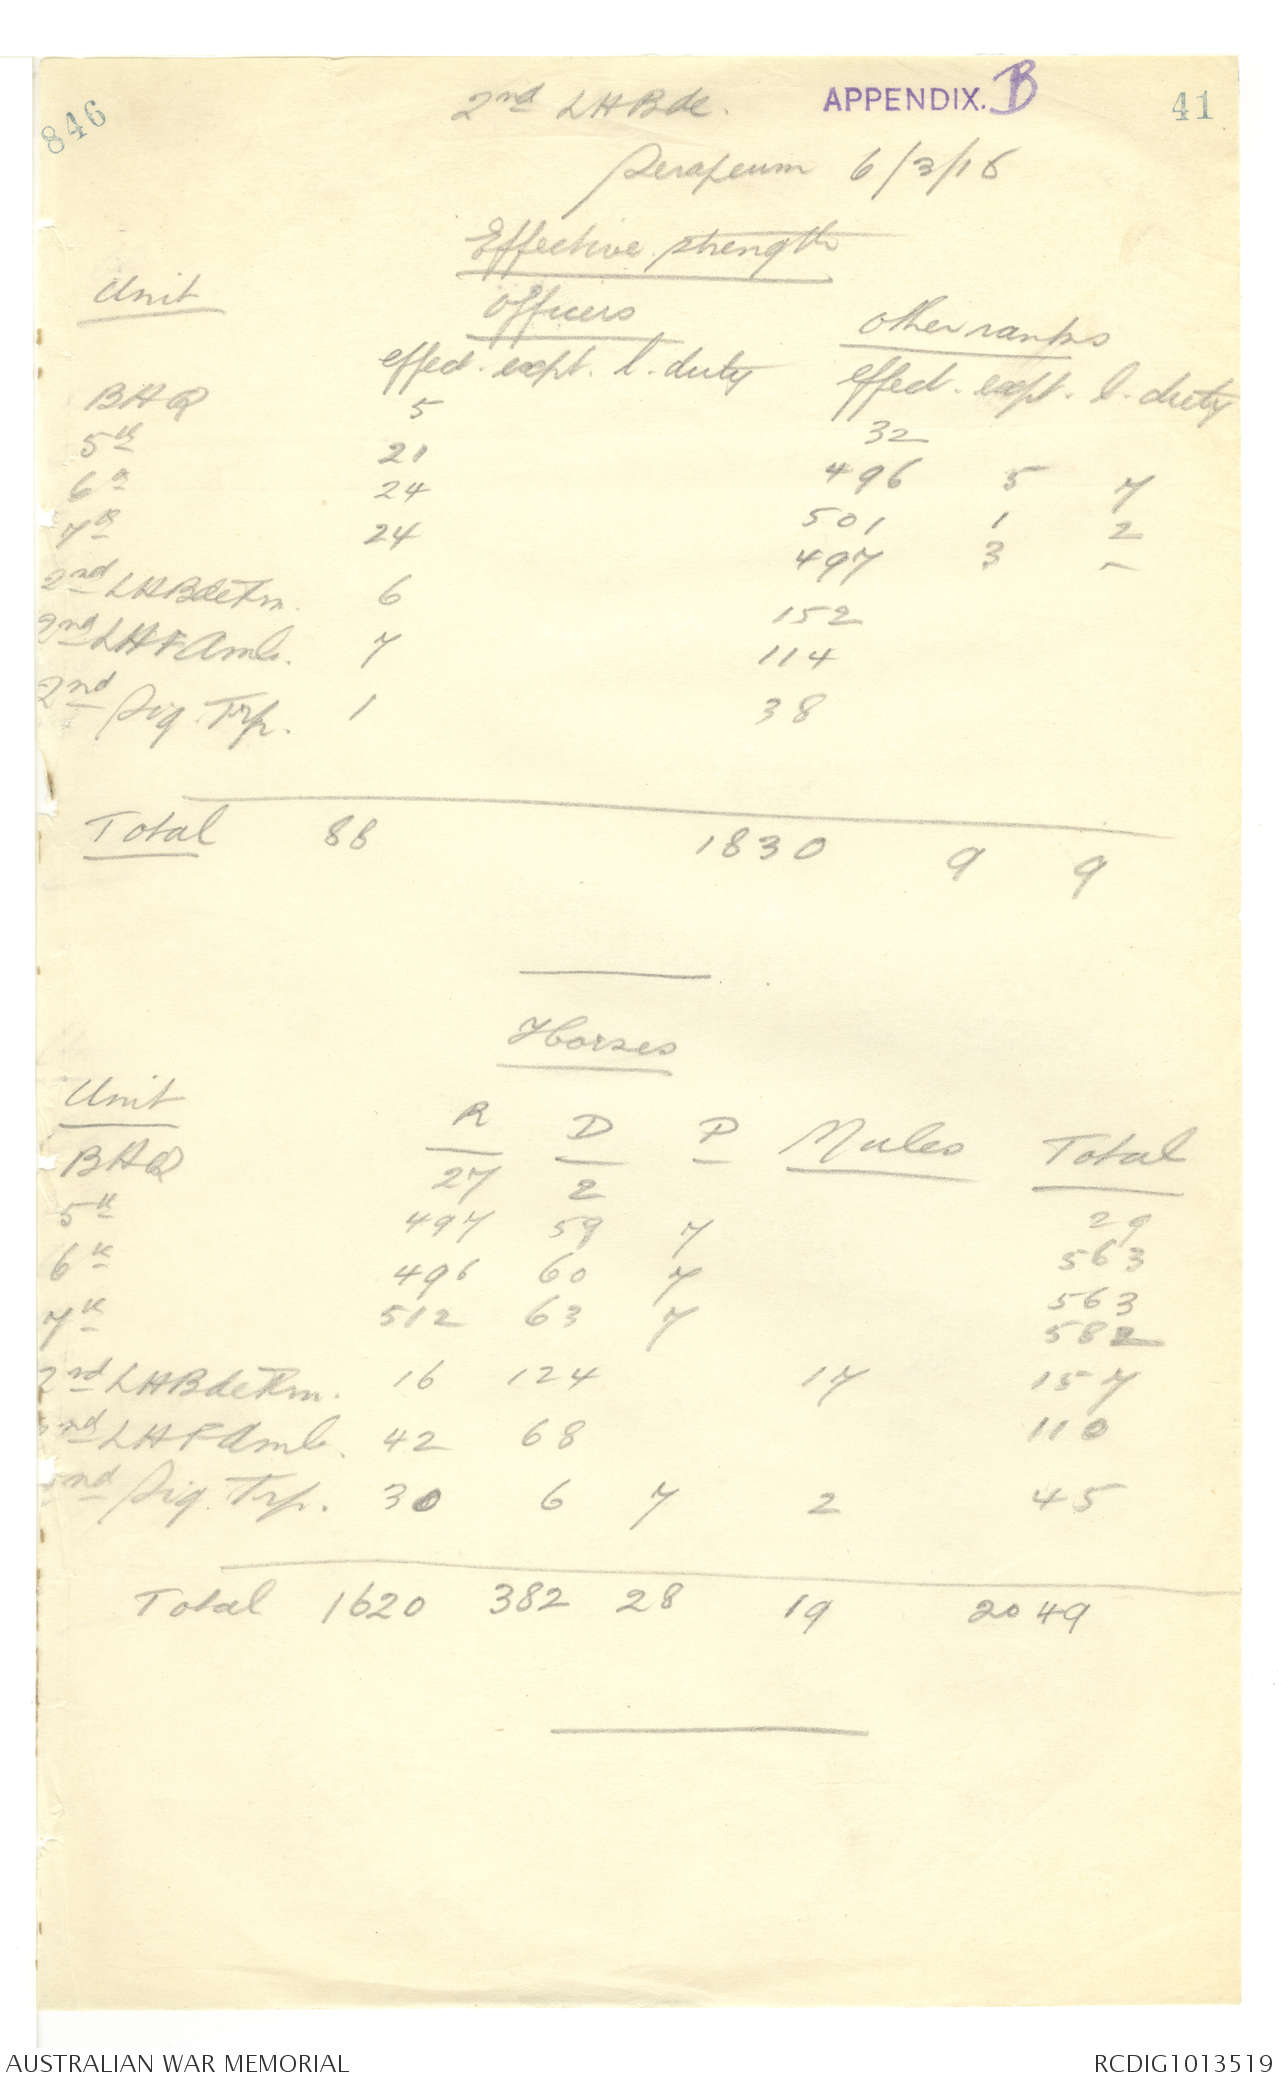 846
2nd LHBde. APPENDIX. B 41
Serapeum 6/3/16
Effective strength
Unit Officers other ranks
effect. expt. l. duty effect. expt. l. duty
BHQ 5 32
5th 21 496 5 7
6th 24 501 1 2
7th 24 497 3 -
2nd LHBdeTrn. 6 152
2nd LHF Amb. 7 114
2nd Sig. Trp. 1 38
Total 88 1830 9 9
Horses
Unit R D P Mules Total
BHQ 27 2 29
5th 497 59 7 563
6th 496 60 7 563
7th 512 63 7 582
2nd LHBdeTrn. 16 124 17 157
2nd LHF Amb. 42 68 110
2nd Sig. Trp. 30 6 7 2 45
Total 1620 382 28 19 2049
AUSTRALIAN WAR MEMORIAL RCDIG1013519